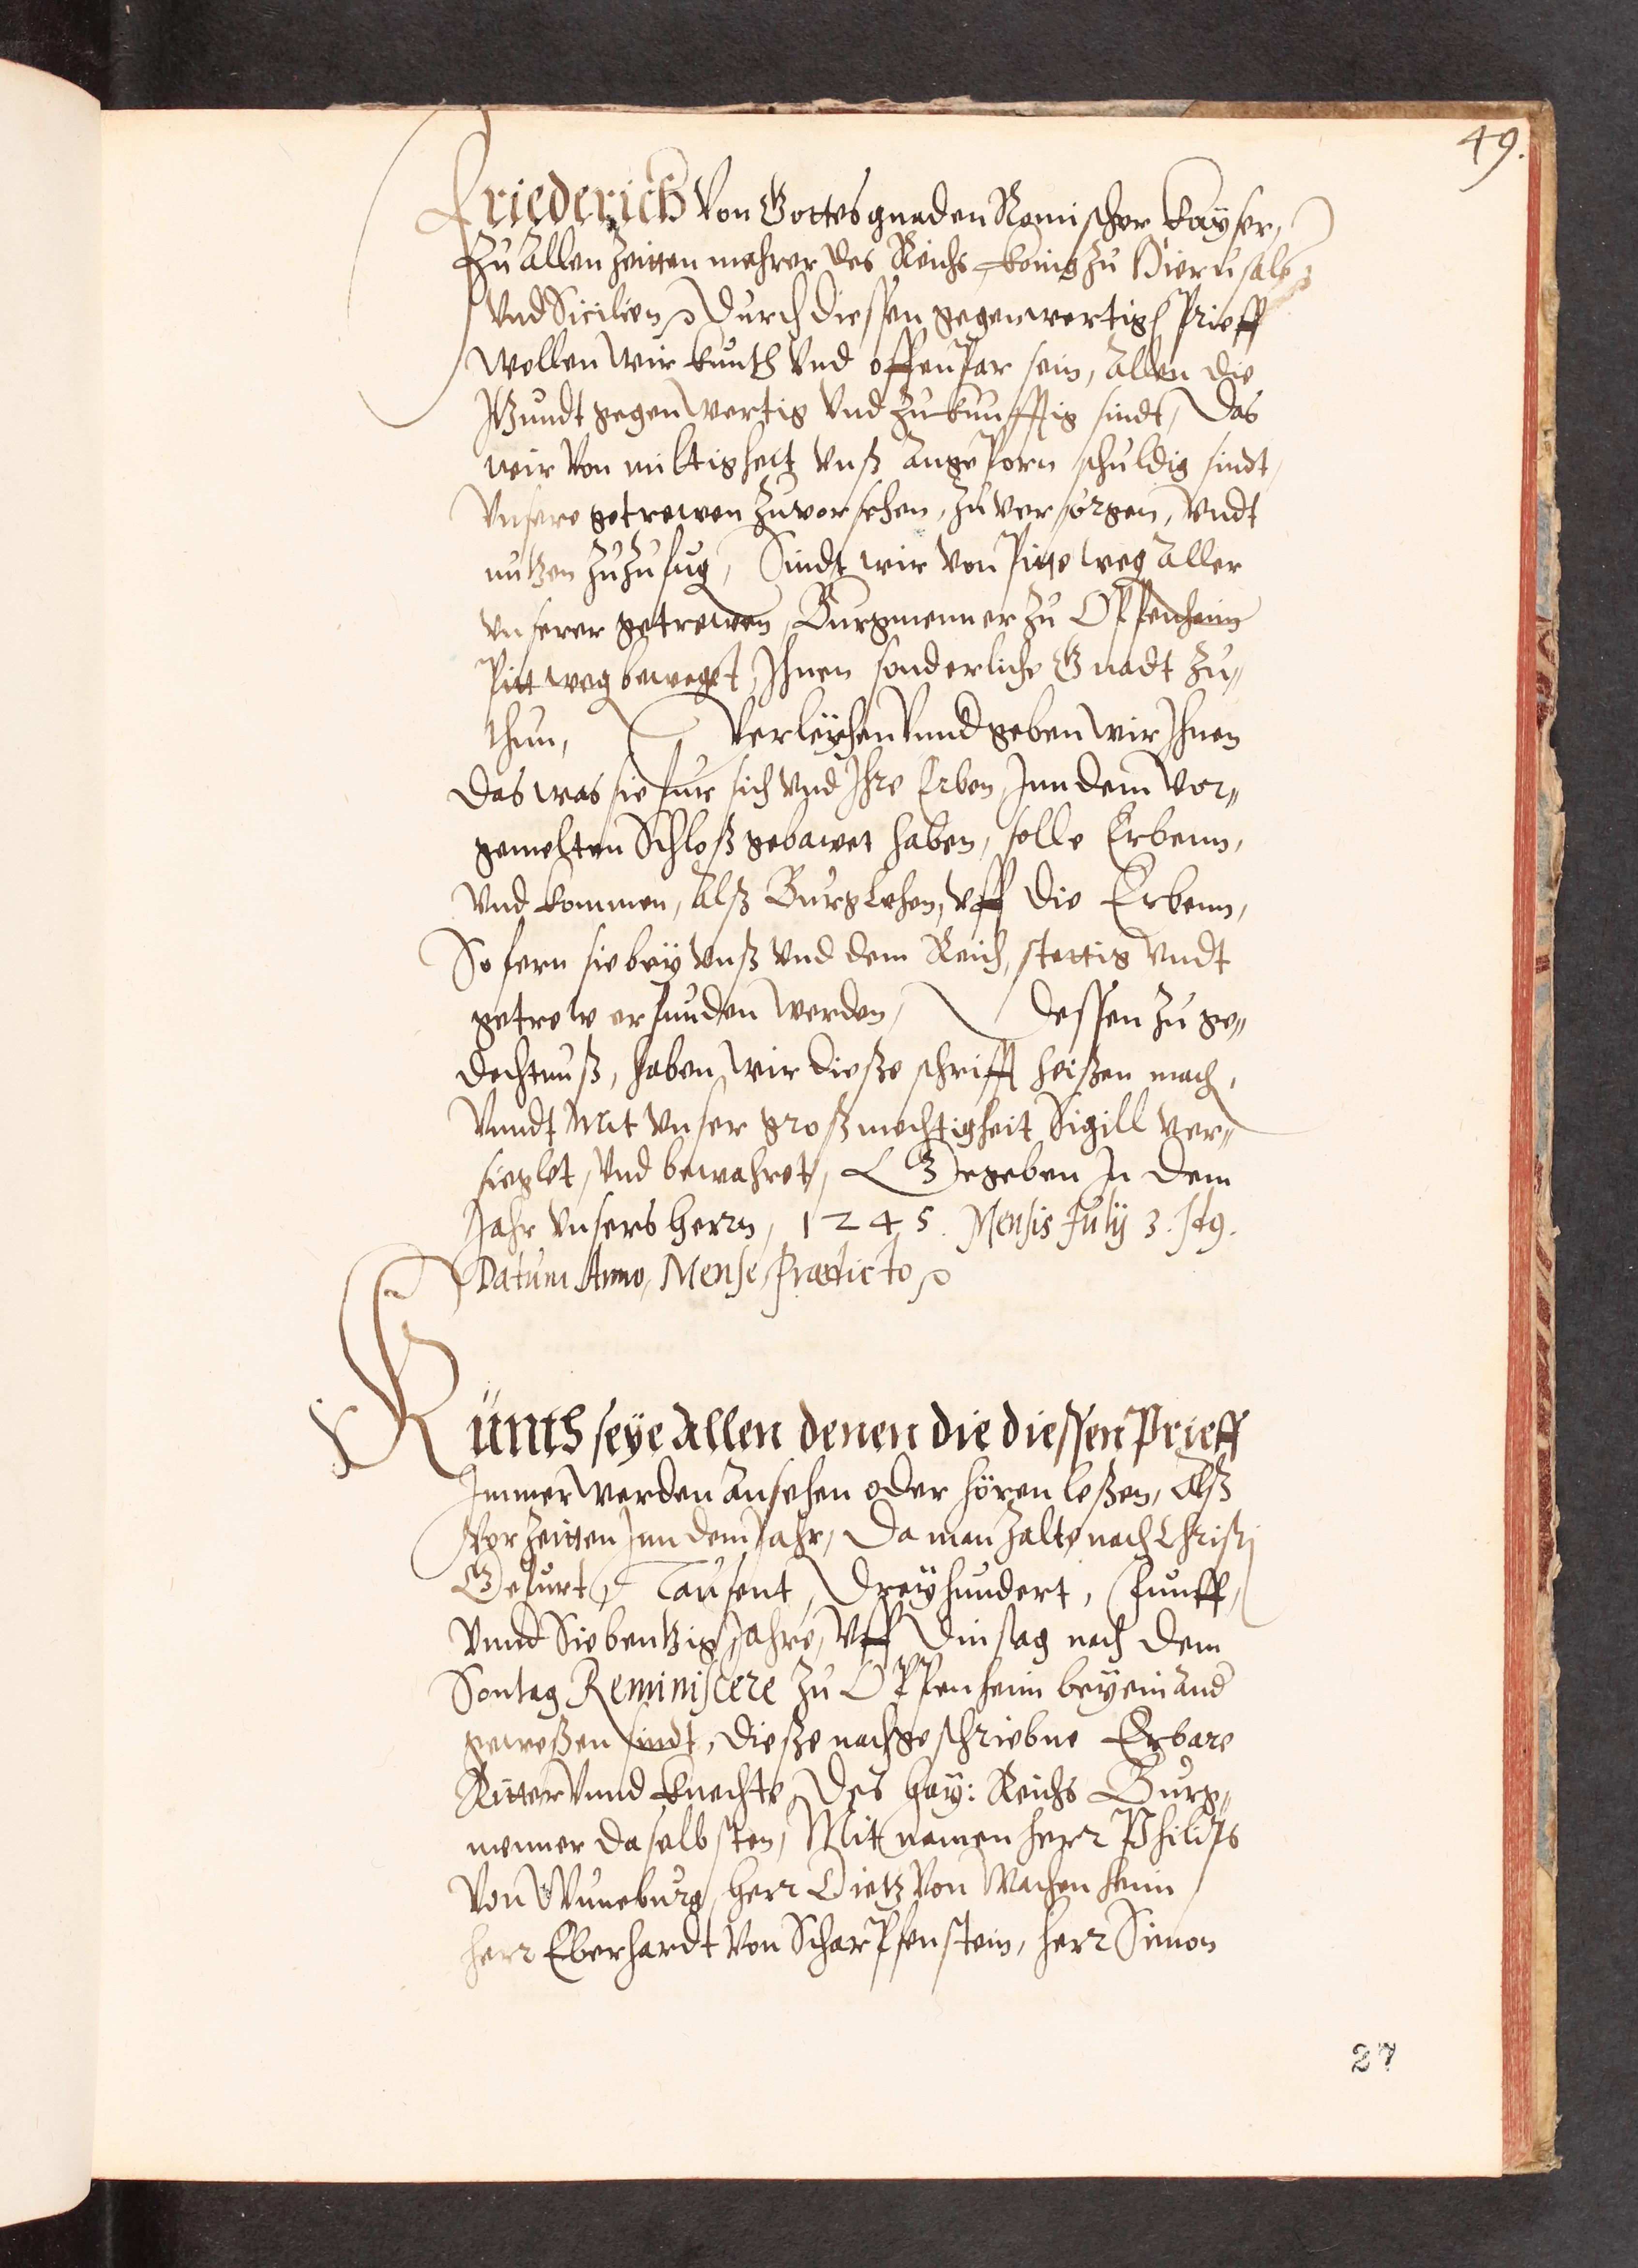 49.
Friederich Von Gottes gnaden Romischer Kayser,
Zu Allen Zeitten mehrer des Reichs, König zu Hierusale
Vnd Sicilien Durch diessen gegenwertig Prieff
Wollen Wir Kunth Vnd offenpar sein, Allen die
Itzundt gegenwertig Vnd zukunfftig sindt, Das
wir Von miltigkeit Vnß Angeporn schuldig sindt,
Vnsere getrewen Zuvorsehen, Zuversorgen, Vndt
nutzen Zuzufug, Sindt wir von Pitte weg Aller
Vnserer getrewen, Burgmenner Zu Oppenheim
Pitt weg beweget, Ihnen sonderliche Gnadt Zu„
thun, Verleyhen Vnnd geben Wir Ihnen
Das was sie fur sich Vnd Ihre Erben, Inn dem Vor„
gemelten Schloß gebawet haben, solle Erbenn,
Vnd kommen, Alß Burglehen, Vff die Erbenn,
So fern sie bey Vnß Vnd dem Reich, stettig Vndt
getrew erfunden Werden, Dessen Zu ge„
dechtnuß, haben Wir dieße schrifft heißen mach,
Vnndt Mit Vnser großmechtigkeit Sigill Ver„
sieglet, Vnd bewahret, Gegeben In dem
Jahr Vnsers Herrn, 1245. Mensis July 3.
Datum Anno, Mense, Praedicto
Künth seye Allen denen die diessen Prieff
Immer Werden Ansehen oder hören leßen, Alß
Vor Zeitten Inn dem Jahr, Da man Zalte nach Christi
Gepurt, Tausent, Dreyhundert, Funff,
Vnnd Siebentzig Jahre, Vff Dinstag nach dem
Sontag Reminiscere Zu Oppenheim beyeinand
geweßen sindt, Dieße nachgeschriebne Erbare
Ritter Vnnd Knechte, Des Hay: Reichs Burg„
menner daselbsten, Mit namen Herr Philips
Von Wuneburg, Herr Dietz Von Wachenheim
Herr Eberhardt Von Scharpfenstein, Herr Simon
27